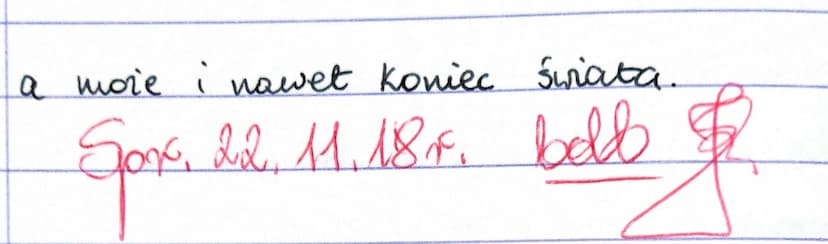 a może i nawet koniec świata.
Spr. 22.11.18r. bdb